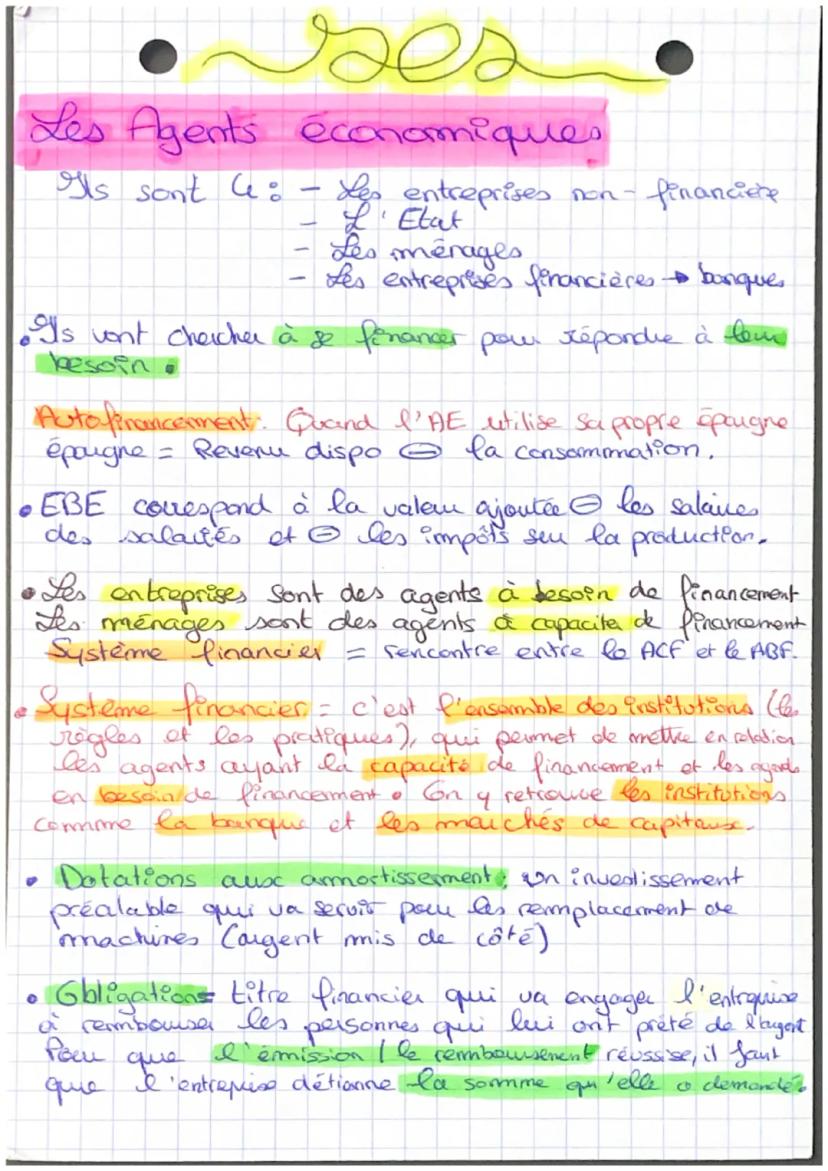 ses
Les Agents économiques
Ils sont 4 : - Les entreprises non-financière
- L'Etat
- Les ménages
- Les entreprises financières → banques
• Ils vont chercher à se financer pour répondre à leur
besoin.
Autofinancement : Quand l'AE utilise sa propre épargne
épargne = Revenu dispo ⊖ la consommation.
• EBE correspond à la valeur ajoutée ⊖ les salaires
des salariés et ⊖ les impôts sur la production.
• Les entreprises sont des agents à besoin de financement
Les ménages sont des agents à capacite de financement
Système financier = rencontre entre le ACF et le ABF.
• Système financier = c'est l'ensemble des institutions (les
règles et les pratiques), qui permet de mettre en relation
les agents ayant la capacité de financement et les agents
en besoin de financement. On y retrouve les institutions
comme la banque et les marchés de capitaux.
• Dotations aux amortissement : un investissement
préalable qui va servir pour les remplacement de
machines (argent mis de côté)
• Obligations = titre financier qui va engager l'entreprise
à rembourser les personnes qui lui ont prêté de l'argent
Pour que l'émission / le remboursement réussisse, il faut
que l'entreprise détienne la somme qu'elle a demandé.